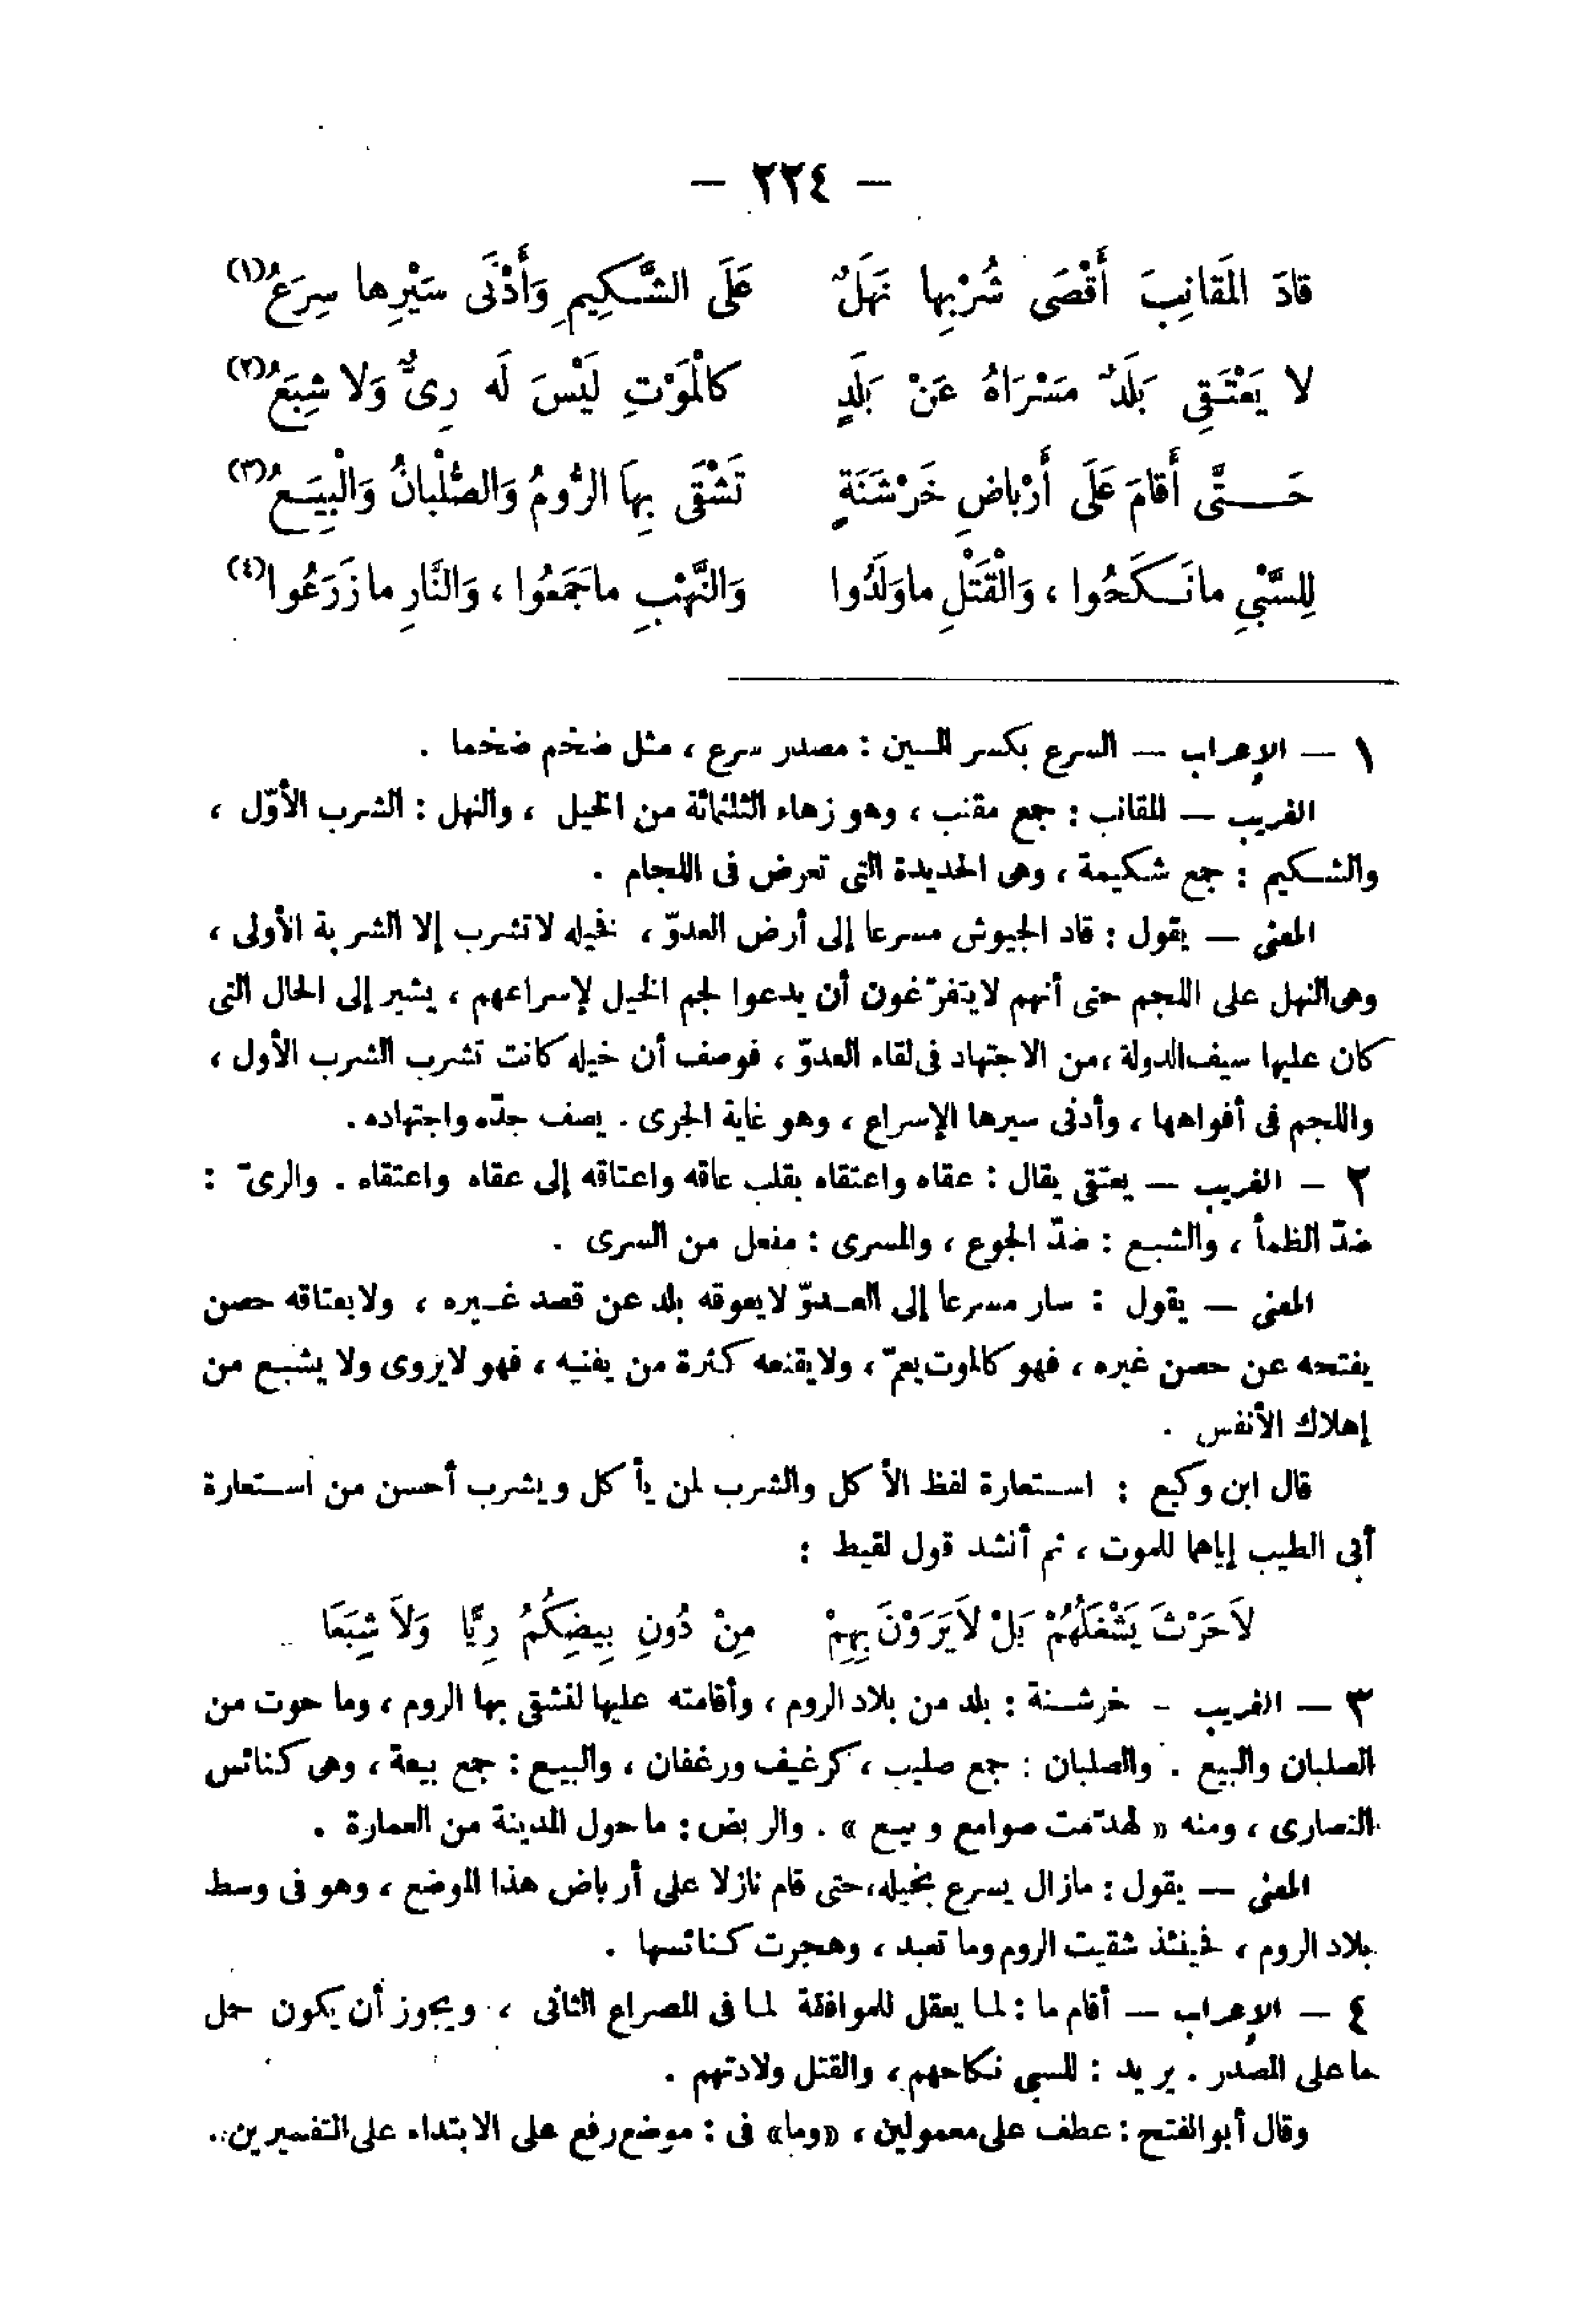 — ٢٢٤ —
قادَ المَقانِبَ أَقْصَى شُرْبِها نَهَلٌ عَلَى الشَّكِيمِ وَأَدْنَى سَيْرِها سِرَعُ(١)
لا يَعْتَقِى بَلَدٌ مَسْرَاهُ عَنْ بَلَدٍ كالْمَوْتِ لَيْسَ لَه رِىٌّ وَلا شِبَعُ(٢)
حَتَّى أَقامَ عَلَى أَرْباضِ خَرْشَنَةٍ تَشْقَى بِهَا الرُّومُ وَالصُّلْبانُ وَالْبِيَعُ(٣)
لِلسَّبْىِ مانَكَحُوا ، وَالْقَتْلِ ماوَلَدُوا وَالنَّهْبِ ماجَمَعُوا ، وَالنَّارِ مازَرَعُوا(٤)
١ — الإعراب — السرع بكسر السين : مصدر سرع ، مثل ضخم ضخما .
الغريب — المقانب : جمع مقنب ، وهو زهاء الثلثمائة من الخيل ، والنهل : الشرب الأوّل ،
والشكيم : جمع شكيمة ، وهى الحديدة التى تعرض فى اللجام .
المعنى — يقول : قاد الجيوش مسرعا إلى أرض العدوّ ، نخيله لاتشرب إلا الشربة الأولى ،
وهى النهل على اللجم حتى أنهم لايتفرّغون أن يدعوا لجم الخيل لإسراعهم ، يشير إلى الحال التى
كان عليها سيف الدولة ، من الاجتهاد فى لقاء العدوّ ، فوصف أن خيله كانت تشرب الشرب الأول ،
واللجم فى أفواهها ، وأدنى سيرها الإسراع ، وهو غاية الجرى . يصف جدّه واجتهاده .
٢ — الغريب — يعتقى يقال : عقاه واعتقاه بقلب عاقه واعتاقه إلى عقاه واعتقاه . والرىّ :
ضدّ الظمأ ، والشبع : ضدّ الجوع ، والمسرى : مفعل من السرى .
المعنى — يقول : سار مسرعا إلى العدوّ لايعوقه بلد عن قصد غيره ، ولايعتاقه حصن
يفتحه عن حصن غيره ، فهو كالموت يعمّ ، ولايقنعه كثرة من يفنيه ، فهو لايروى ولا يشبع من
إهلاك الأنفس .
قال ابن وكيع : استعارة لفظ الأكل والشرب لمن يأكل ويشرب أحسن من استعارة
أبى الطيب إياهما للموت ، ثم أنشد قول لقيط :
لاَحَرْثَ يَشْغَلُهُمْ بَلْ لاَيَرَوْنَ بِهِمْ مِنْ دُونِ بِيضِكُمُ رِيًّا وَلاَ شِبَعَا
٣ — الغريب - خرشنة : بلد من بلاد الروم ، وأقامته عليها لتشقى بها الروم ، وما حوت من
الصلبان والبيع . والصلبان : جمع صليب ، كرغيف ورغفان ، والبيع : جمع بيعة ، وهى كنائس
النصارى ، ومنه « لهدّمت صوامع وبيع » . والربض : ماحول المدينة من العمارة .
المعنى — يقول : مازال يسرع بخيله ، حتى قام نازلا على أرباض هذا الموضع ، وهو فى وسط
بلاد الروم ، فحينئذ شقيت الروم وما تعبد ، وهجرت كنائسها .
٤ — الإعراب — أقام ما : لما يعقل للموافقة لما فى المصراع الثانى ، ويجوز أن يكون حمل
ما على المصدر . يريد : للسبى نكاحهم ، والقتل ولادتهم .
وقال أبو الفتح : عطف على معمولين ، «وما» فى : موضع رفع على الابتداء على التفسيرين .